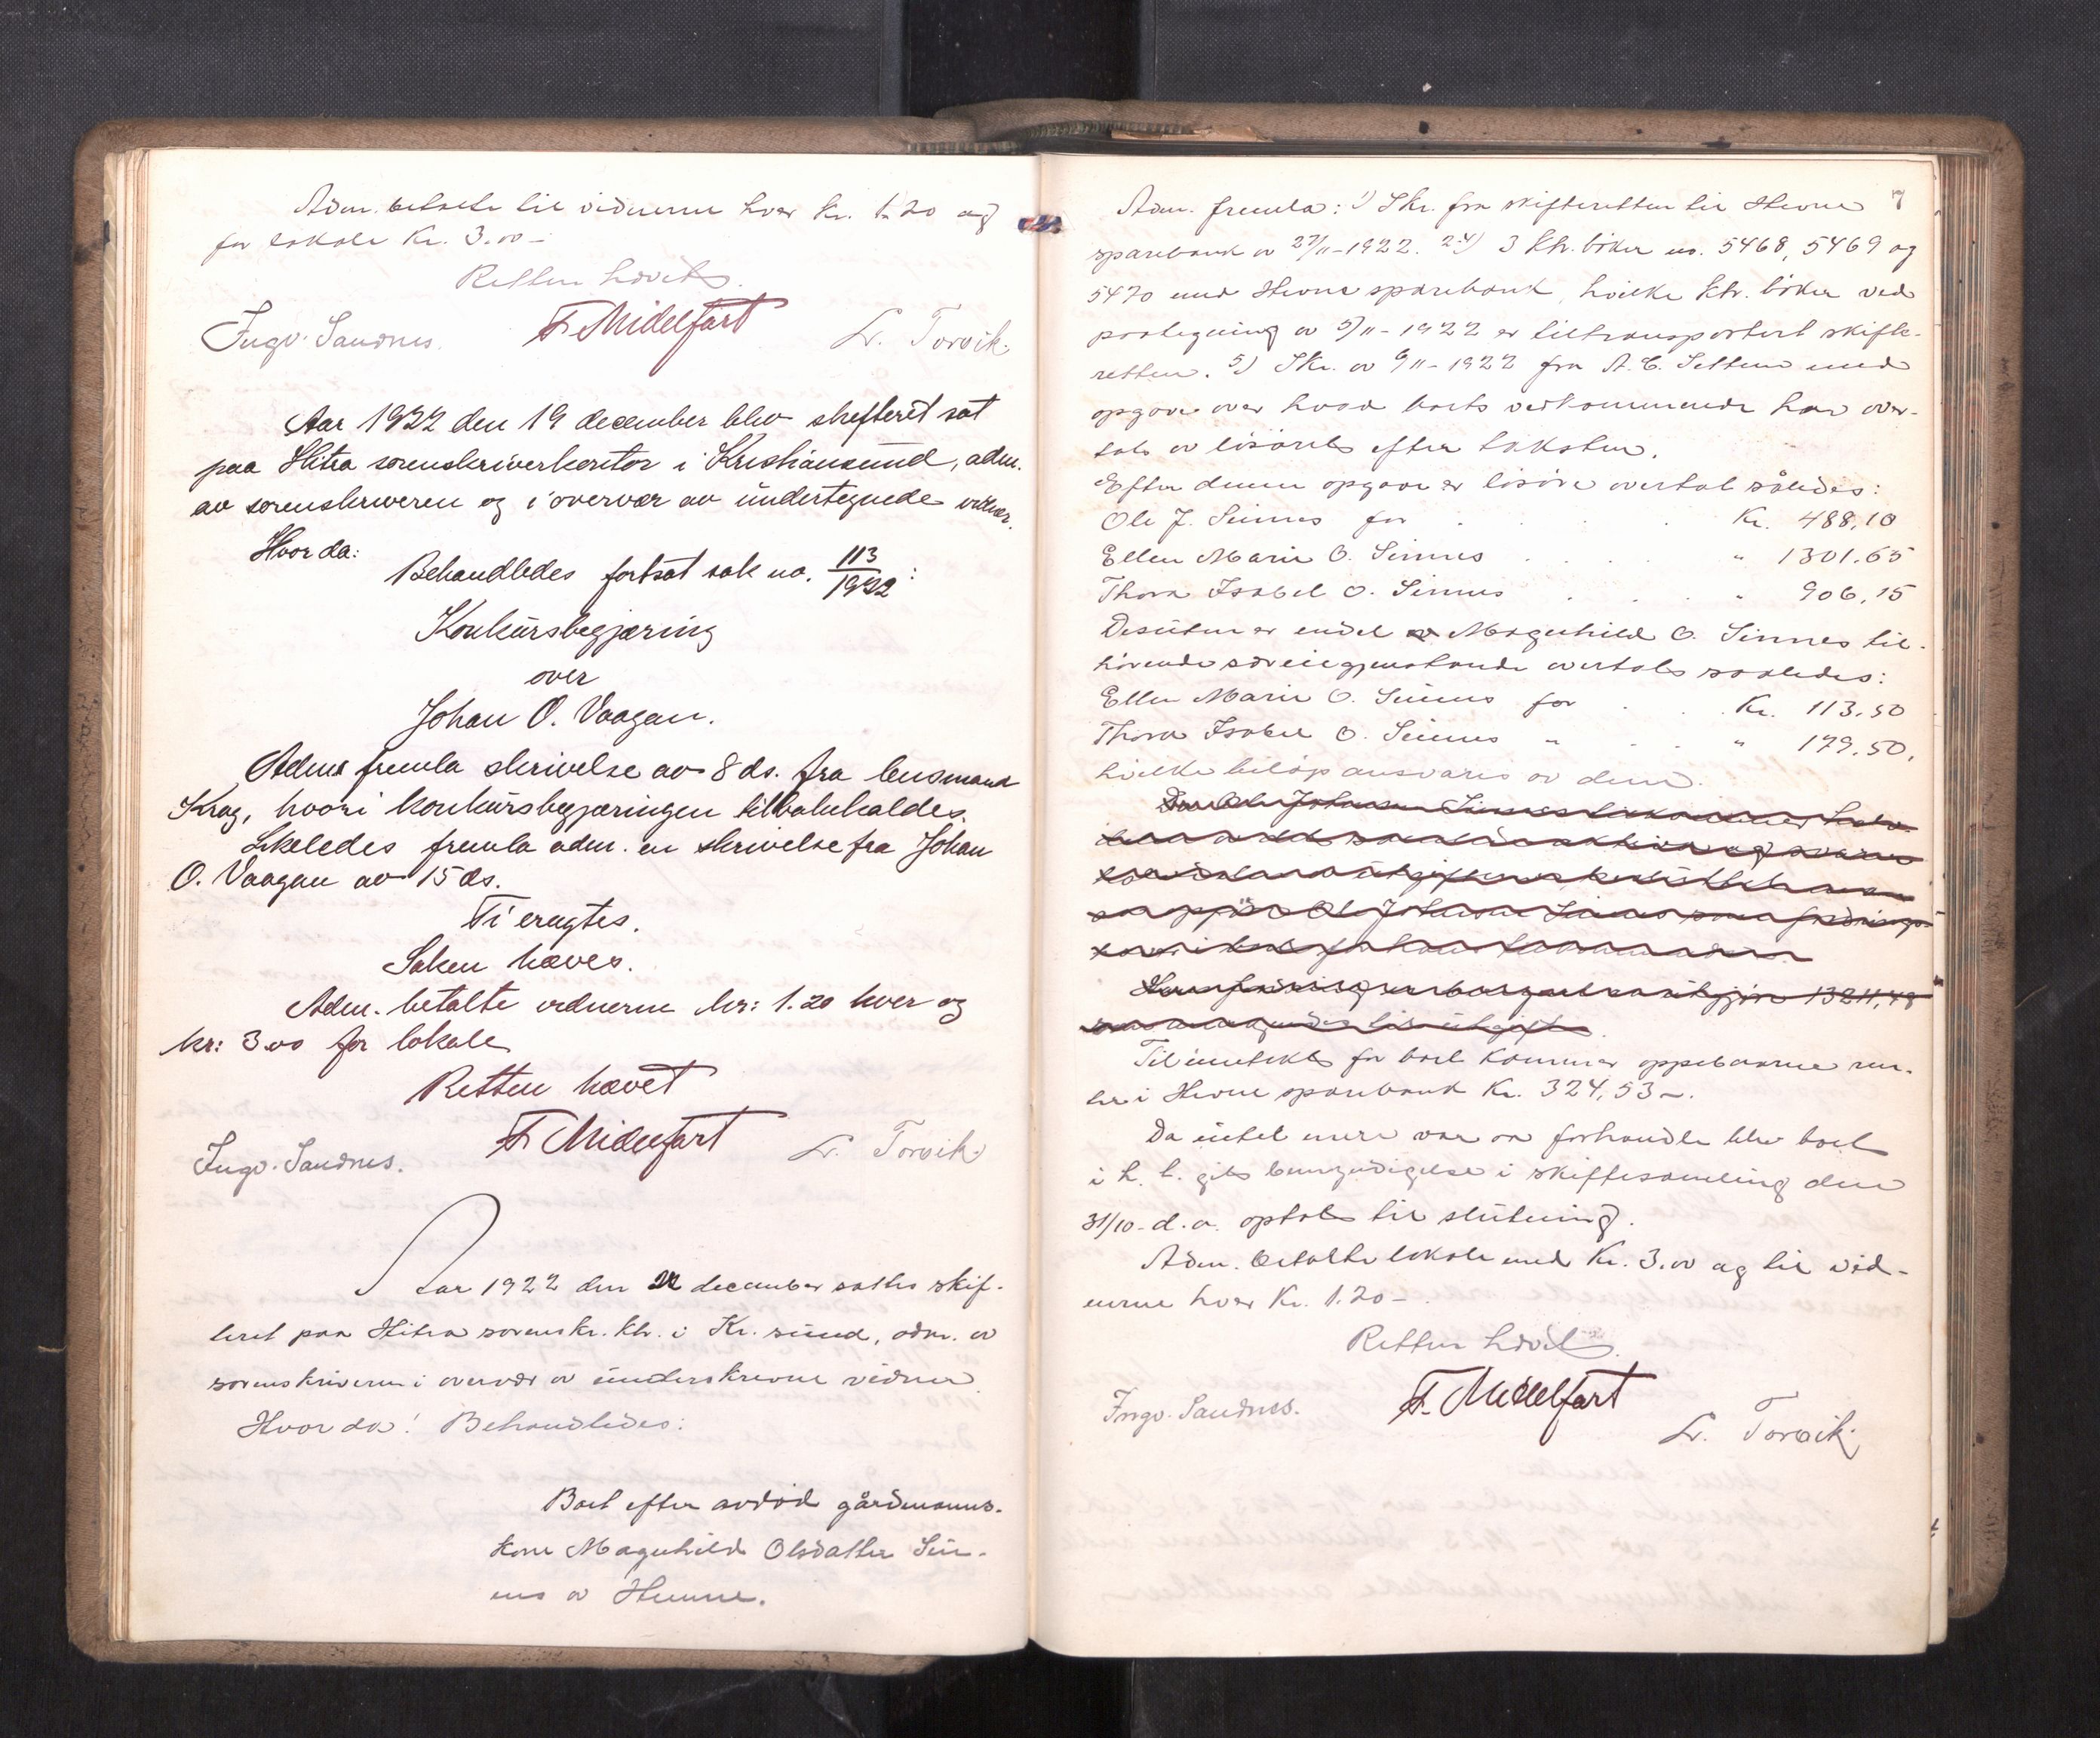 Adm. betalte til vidnerne hver kr. 1.20 og
for lokale Kr. 3.00 –
Retten hævet.
Ingv. Sandnes. F. Midelfart L. Torvik.
Aar 1922 den 19 december blev skifteret sat
paa Hitra sorenskriverkontor i Kristiansund, adm.
av sorenskriveren og i overvær av undertegnede vidner.
Hvor da:
Behandledes fortsat sak no. 113/1922:
Konkursbegjæring
over
Johan O. Vaagan.
Adm. fremla skrivelse av 8 ds. fra lensmand
Krag, hvori konkursbegjæringen tilbakekaldes.
Likeledes fremla adm. en skrivelse fra Johan
O. Vaagan av 15 ds.
Ti eragtes.
Saken hæves.
Adm. betalte vidnerne kr: 1.20 hver og
kr: 3.00 for lokale
Retten hævet
Ingv. Sandnes. F. Midelfart L. Torvik.
Aar 1922 den 22 december sattes skif-
teret paa Hitra sorenskr. ktr. i Kr.sund, adm. av
sorenskriveren i overvær av underskrevne vidner
Hvor da! Behandledes:
Boet efter avdød gårdmanns-
kone Magnhild Olsdatter Sin-
nes av Hevne.
7
Adm. fremla: 1) Skr. fra skifteretten til Hevne
sparebank av 27/11-1922. 2-4) 3 ktr. bøker no. 5468, 5469 og
5470 med Hevne sparebank, hvilke ktr. bøker ved
paategning av 5/11-1922 er tiltransportert skifte-
retten. 5) Skr. av 6/11-1922 fra A. C. Settem med
opgave over hvad boets vedkommende har over-
tat av løsøret efter taksten.
Efter denne opgave er løsøre overtat således:
Ole J. Sinnes for . . . Kr. 488,10
Ellen Marie O. Sinnes . . . " 1301.65
Thora Isabel O. Sinnes . . . " 906,15
Desuten er endel Magnhild O. Sinnes til-
hørende særeiegjenstande overtat saaledes:
Ellen Marie O. Sinnes for . . Kr. 113.50
Thora Isabel O. Sinnes " . . " 179.50,
hvilke beløp ansvares av dem.
13211,48
Til inntekt for boet kommer oppebaarne ren-
ter i Hevne sparebank Kr. 324,53 –.
Da intet mere var at forhandle blev boet
i h. t. git bemyndigelse i skiftesamling den
31/10- d.a. optat til slutning.
Adm. betalte lokale med Kr. 3.00 og til vid-
nerne hver Kr. 1.20 –
Retten hævet.
Ingv. Sandnes. F. Midelfart
L. Torvik.